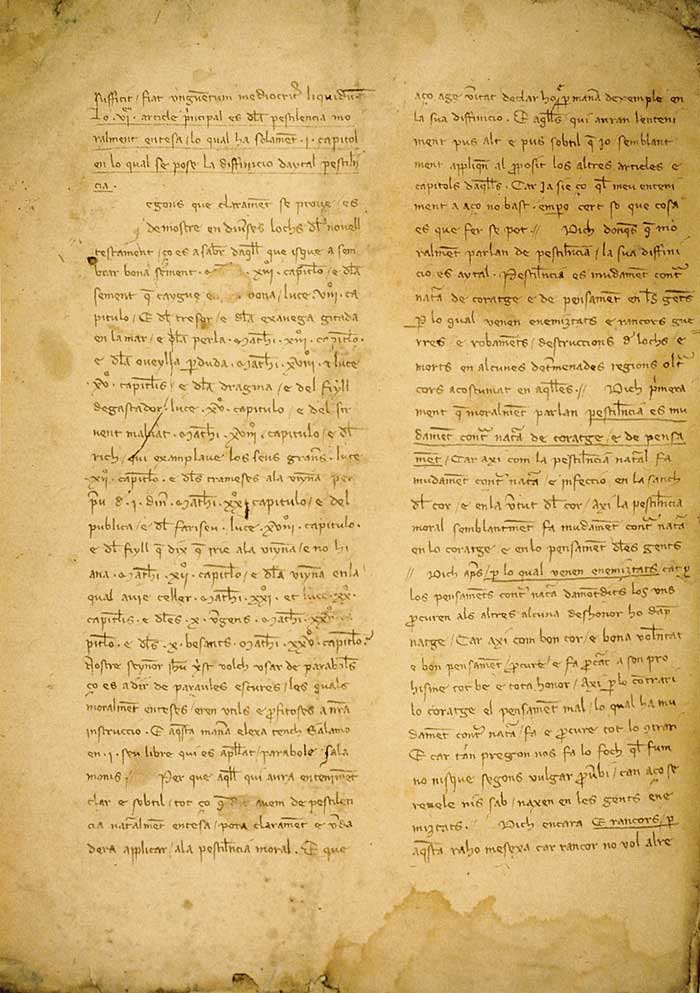 sufficit / fiat unguentum mediocrit̃ liquidum
Lo .vi. article principal es dla pestilencia mo
ralment entesa / lo qual ha solament .i. capitol
en lo qual se pose la diffinicio daytal pestilẽ
cia .
egons que clarament se prove / es
demostre en diverses lochs dl novell
testament / ço es a saber daqll que isque a sem
brar bona sement . xiii . capitlo / e dla
sement q caygue e bona / luce . viii . ca
pitulo / e dl tresor / e dla exavega gitada
en la mar / e dla perla . Mathi . xiii . capitlo .
e dla oveylla pduda . Mathi . xviii . & luce
xv . capitlis / e dla dragma / e del fiyll
degastador / luce . xv . capitulo / e del sir
vent malvat . Mathi . xviii . capitulo / e dl
rich / qui examplave los seus graners . luce
xii . capitlo . e dls trameses ala vinya per
preu d . i . diner . Mathi . xx . capitulo / e del
publica / e dl fariseu . luce . xviii . capitulo .
e dl fiyll q dix q irie ala vinya / e no hi
ana . Mathi . xxi . capitlo / e dla vinya en la
qual avie celler . Mathi . xxi . et luce . xx .
capitlis . e dles . x . vgens . Mathi . xxv .
capitlo . e dls . x . besants . Mathi . xxv . capitlo .
Nostre senyor ihu xst volch usar de parabols
ço es a dir de paraules escures / les quals
moralment enteses / eren utils e profitoses a nra
instruccio . E aqsta mana elexa tench Salamo
en . i . seu libre qui es apllat / parabole Sala
monis . // Per que aqll qui aura enteniment
clar e sobtil / tot ço q dit avem de pestilen
cia natalment entesa / pora clarament e vda
dera applicar / ala pestilencia moral . E que
aço age vitat declar ho p mana dexemple en
la sua diffinicio . E aqlls qui auran lenteni
ment pus alt e pus sobtil q io semblant
ment apliquen al proposit los altres articles e
capitols daqlls . Car ja sie ço ql meu enteni
ment a aço no bast . empo cert so que cosa
es que fer se pot // Dich donqs q mo
ralment parlan de pestilencia / la sua diffini
cio es aytal . Pestilencia es mudament cont
nata de coratge e de pensament en ls gents
p lo qual venen enemiztats e rancors gue
rres / e robaments / destruccions d lochs / e
morts en alcunes determenades regions olt
cors acostumat en aqlles . // Dich primera
ment q moralment parlan pestilencia es mu
dament cont nata de coratge / e de pensa
ment / Car axi com la pestilencia natal fa
mudament cont nata / e infeccio en la sanch
dl cor / e en la virtut dl cor / axi la pestilencia
moral semblantment fa mudament cont nata
en lo coratge e en lo pensament dles gents
// Dich aps / p lo qual venen enemiztats car p
los pensaments cont nata damontdits los uns
procuren als altres alcuna deshonor ho dap
natge / Car axi com bon cor / e bona volentat
e bon pensament procure / e fa procar a son pro
hisme tot be e tota honor / Axi p lo contrari
lo coratge el pensament mal / lo qual ha mu
dament cont nata / fa e procure tot lo contrari
E car tan pregon nos fa lo foch ql fum
no nisque segons vulgar proverbi / can aço se
revele nis sab / naxen en les gents ene
miztats . // Dich encara E rancors / p
aqsta raho mesexa car rancor no vol alre